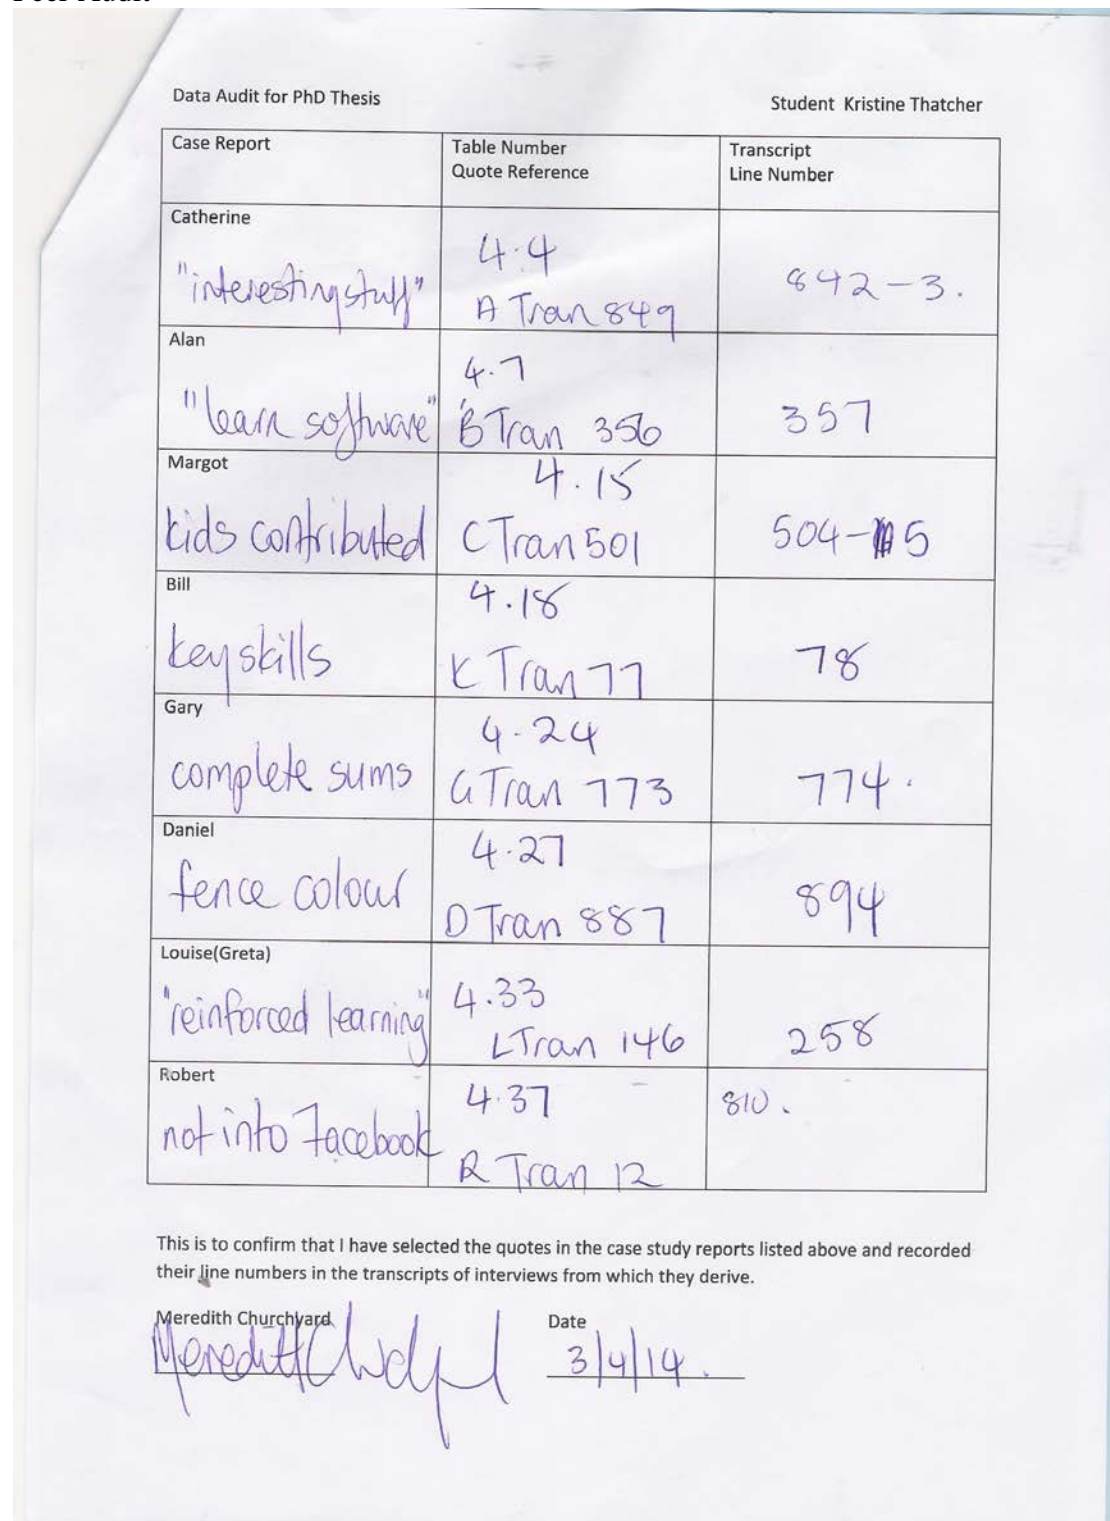 Data Audit for PhD Thesis
Student Kristine Thatcher
Case Report
Table Number
Quote Reference
Transcript
Line Number
Catherine
"interesting stuff"
4.4
A Tran 849
842-3.
Alan
"learn software"
4.7
B Tran 356
357
Margot
kids contributed
4.15
C Tran 501
504-5
Bill
key skills
4.18
K Tran 77
78
Gary
complete sums
4-24
G Tran 773
774.
Daniel
fence colour
4.27
D Tran 887
894
Louise(Greta)
"reinforced learning"
4.33
L Tran 146
258
Robert
not into Facebook
4.37
R Tran 12
810.
This is to confirm that I have selected the quotes in the case study reports listed above and recorded
their line numbers in the transcripts of interviews from which they derive.
Meredith Churchyard
Date
3/4/14.